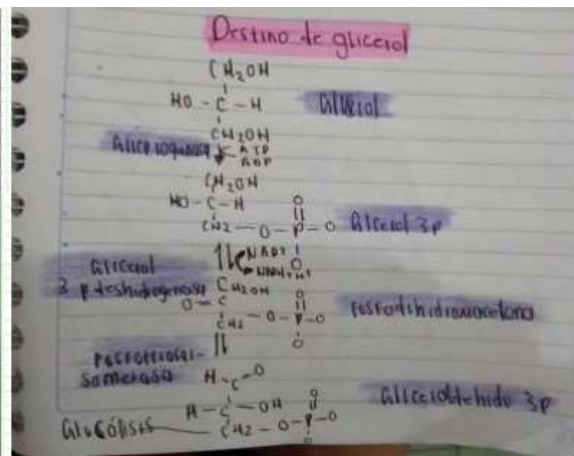 Destino de glicerol
CH₂OH
HO - C - H Glicerol
CH₂OH
Gliceroquinasa ATP
ADP
CH₂OH
HO - C - H O
CH₂ - O - P - O Glicerol 3p
O
Glicerol NAD+
3 p deshidrogenasa NADH, H+
CH₂OH
O = C O Fosfodihidroxiacetona
CH₂ - O - P - O
O
Fosfotriosai-
somerasa H - C = O
H - C - OH O Gliceraldehido 3p
Glucólisis CH₂ - O - P - O
O